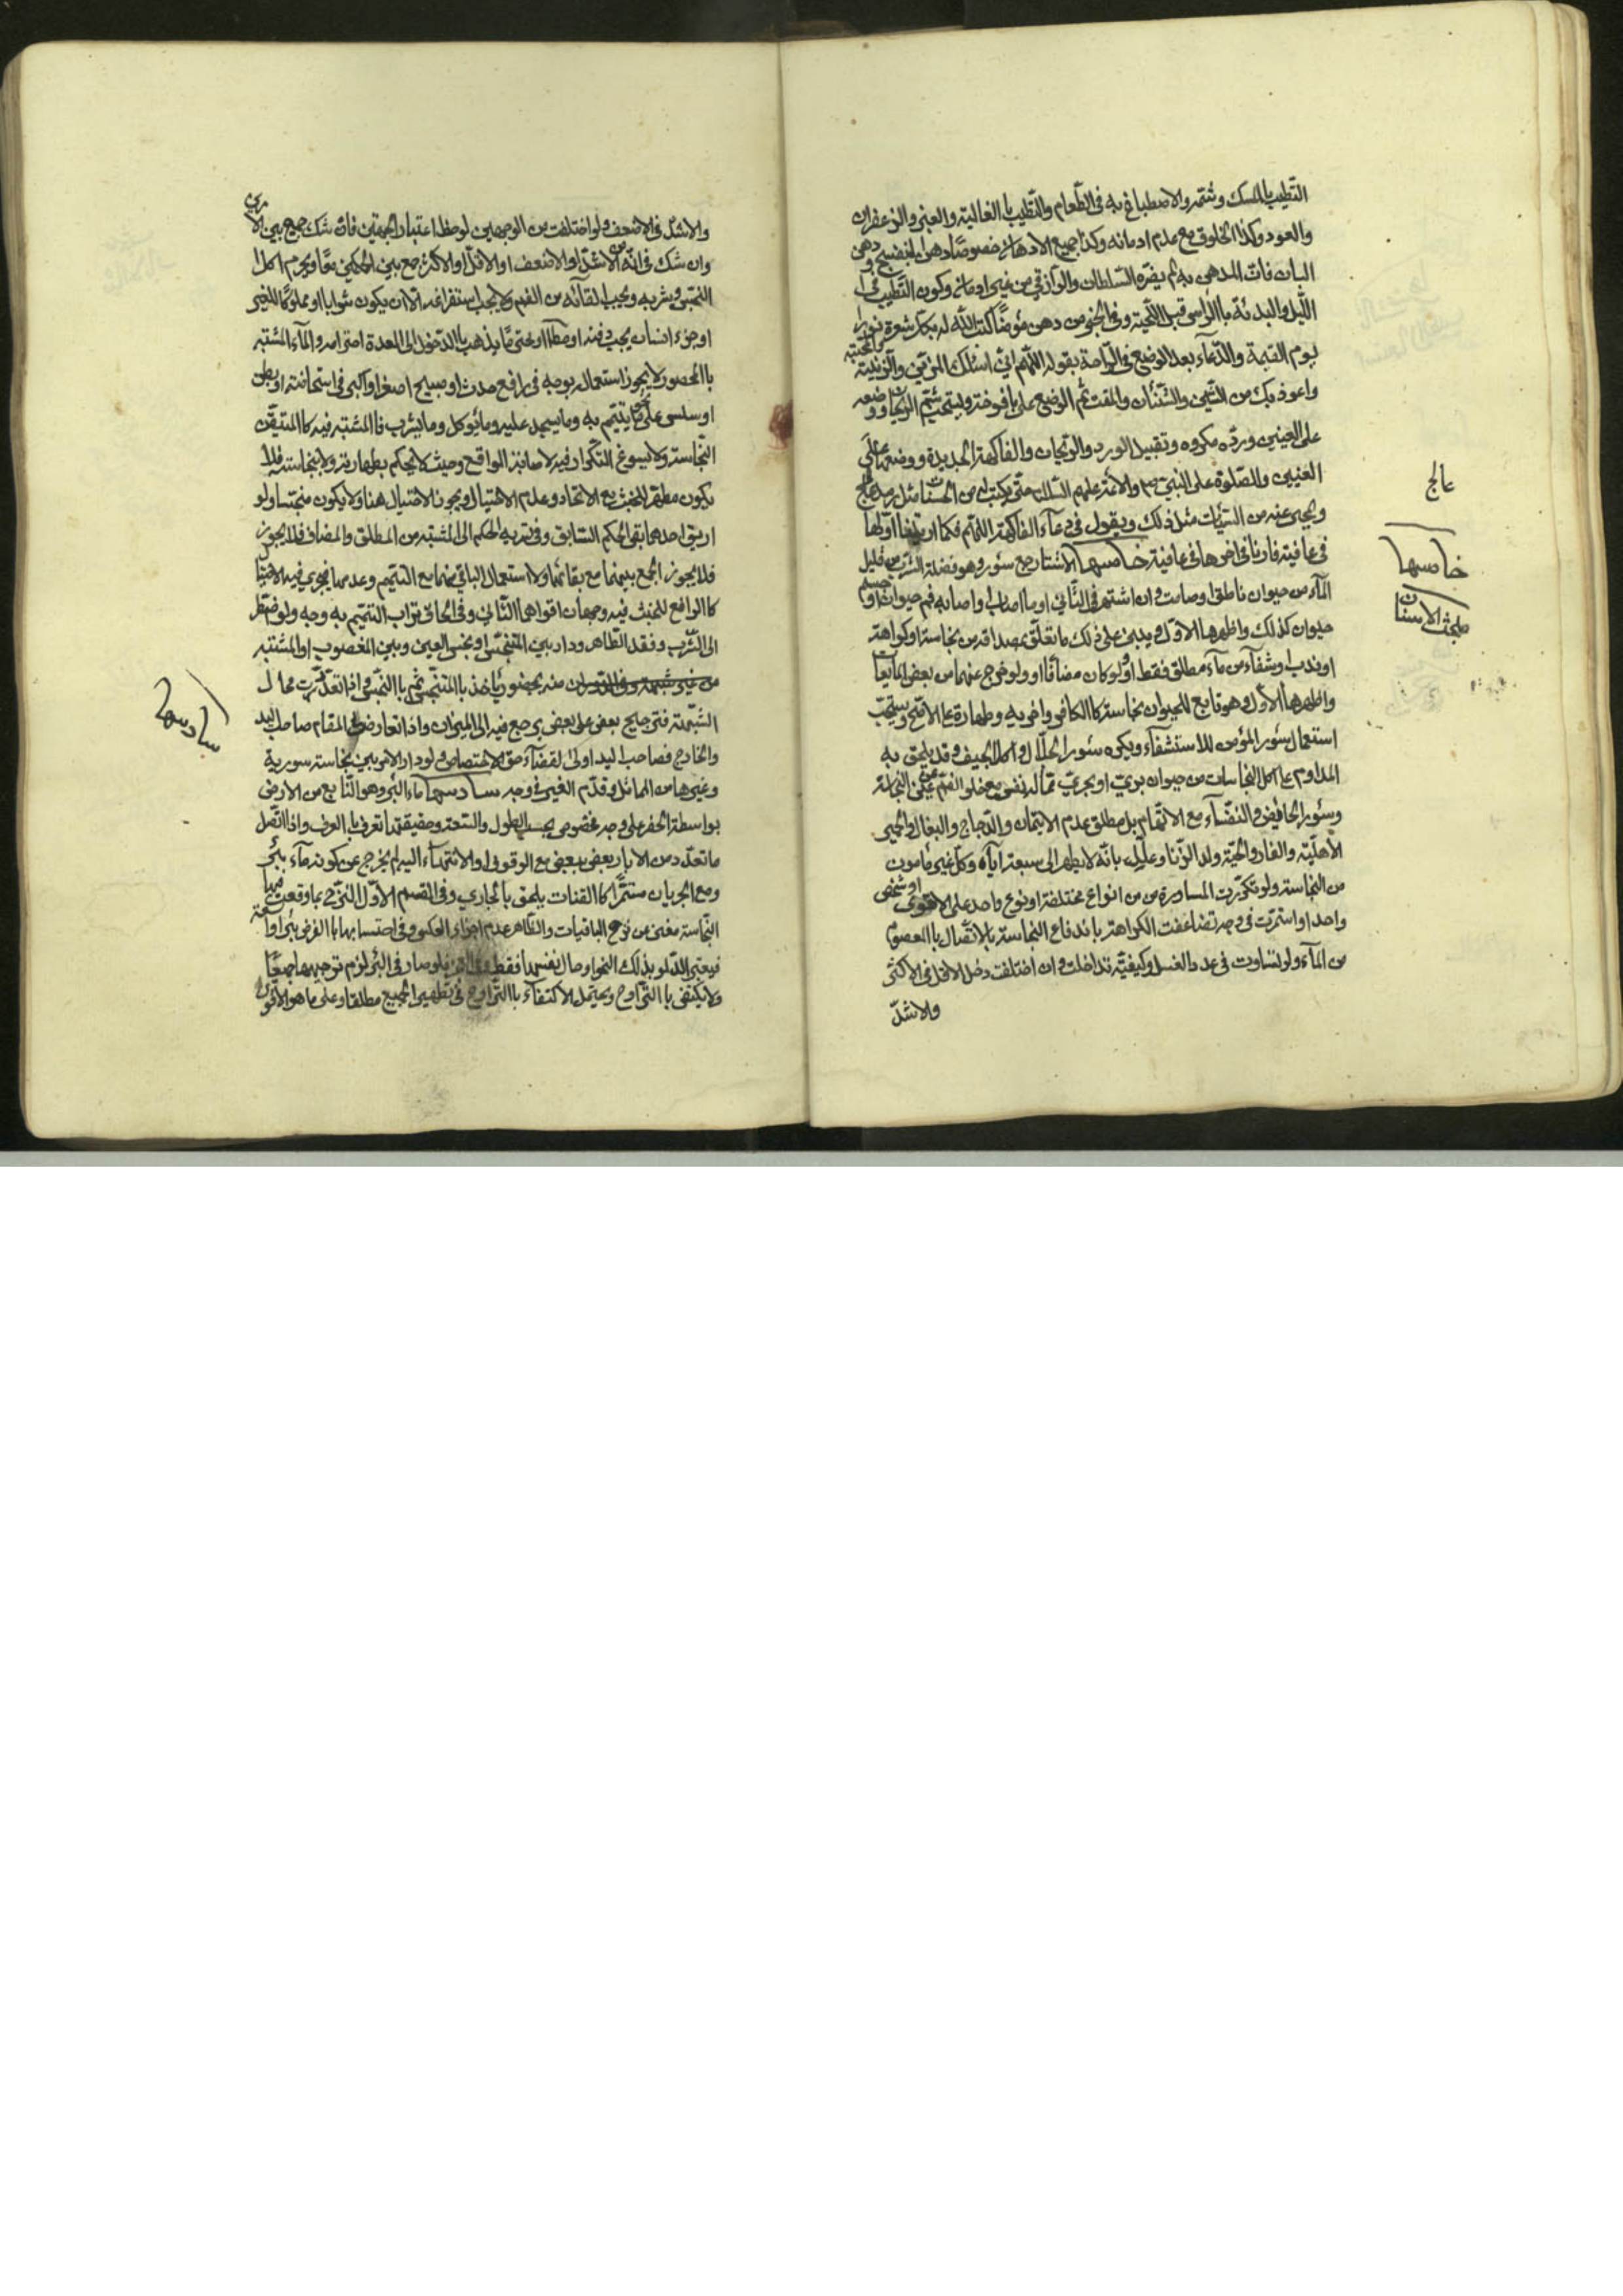 التّطيب بالمسك وشمّه والاصطباغ به فى الطّعام والتّطيب با الغالية والعنبر والزعفران
والعود وكذا الخلوق مع عدم ادمانه وكذا جميع الادهان خصوصًا دهن البنفسج ودهن
البان فان المدهن به لم يضره السّلطان والرازقي من غير ادمان وكون التّطيب فى
اللّيل والبدئة باالرّاس قبل اللّحية وفى الخبر من دهن مؤمنًا كتب اللّه له بكل شعرة نورا
يوم القيمة والدّعاء بعد الوضع فى الرّاحة بقوله اللّهم انّي اسئلك الزين والزّينة والمحبّة
واعوذ بك من الشّين والشّنئان والمقت ثم الوضع على يافوخه ويستحبّ شمّ الريحان ووضعه
على العينين وردّه مكروه وتقبيل الورد والرّيحان والفاكهة الجديدة ووضعها على
العينين والصّلوة على النبيّ ص والائمّة عليهم السّلام حتى يكتب له من الحسنات مثل رمل عالج
ويمحى عنه من السيّئات مثل ذلك ويقول فى دعآء الفاكهة اللّهم فكما اريتنا اوّلها
فى عافية فارنا اخرها فى عافية خامسها الاسئار جمع سئور وهو فضلة الشرب من قليل
المآء من حيوان ناطق او صامت وان اشتهر فى الثّاني او ما اصاب او اصابه فم حيوان او جسم
حيوان كذلك واظهرها الاوّل ويبنى على ذلك ما تعلّق بمصداقه من نجاسة او كراهة
او ندب او شفآء من مآء مطلق فقط او ولو كان مضافًا او ولو خرج عنهما من بعض المايعات
واظهرها الاول وهو تابع للحيوان نجاسة كا الكافر واخويه وطهارة على الاصحّ ويستحبّ
استعمال سئور المؤمن للاستشفآء ويكره سئور الجلّال واكل الجيف وقد يلحق به
المداوم على اكل النجاسات من حيوان بريّ او بحريّ ممّا له نفس مع خلو الفم عن عين النجاسة
وسئور الحائض والنفسآء مع الاتّهام بل مطلق عدم الايتمان والدّجاج والبغال والحمير
الأهليّة والفار والحيّة وولد الزّنا وعلّل بانّه لا يطهر الى سبعة آباء وكل غير مأمون
من النجاسة ولو تكرّرت المساورة من انواع مختلفة او نوع واحد على الاقوى او شخص
واحد او استمرّت فى وجه تضاعفت الكراهة با ندفاع النجاسة با لاتّصال با المعصوم
من المآء ولو تساوت فى عدد الغسل وكيفيّته تداخلت وان اختلفت دخل الاقل فى الاكثر
والاشدّ
عالج
خامسها
مبحث الاسئار
والاشدّ فى الاضعف ولو اختلفت من الوجهين لوحظ اعتبار الجهتين فان شك جمع بين الامرين
وان شك فى انّه من الاشدّ او الاضعف او الاقل او الاكثر جمع بين الحكمين معًا ويحرم اكل
النّجس وشربه ويجب القآئه من الفم ولا يجب استفراغه الّا ان يكون شرابا او مملوكًا للغير
او جزء انسان يجب دفنه او مطلقا او غير ممّا يذهب بالدّخول الى المعدة احترامه والمآء المشتبه
با المحصور لا يجوز استعماله بوجه فى رافع حدث او مبيح اصغر او اكبر فى استحاضة او بطن
او سلس على نحو ما يتيمّم به وما يسجد عليه وما يؤكل وما يشرب فا المشتبه فيه كا المتيقّن
النّجاسة ولا يسوغ التّكرار فيه لاصابة الواقع وحيث لا يحكم بطهارته ولا بنجاسته فلا
يكون مطهّرًا للخبث مع الاتّحاد وعدم الاحتيال ويجوز الاحتيال هنا ولا يكون منجّسا ولو
اريق احدهما بقى الحكم السّابق وفى تسرية الحكم الى المشتبه من المطلق والمضاف فلا يجوز
فلا يجوز الجمع بينهما مع بقائهما ولا استعمال الباقي منهما مع التيمّم وعدمها فيجري فيه الاحتيال
كا الرافع للخبث فيه وجهان اقواهما الثّاني وفى الحاق تراب التيمّم به وجه ولو اضطر
الى الشّرب وفقد الطّاهر ودار بين المتنجّس او نجس العين وبين المغصوب او المشتبه
منه يأخذ باالمتنجّس ثم باالنجس واذا تعذّرت محال
الشّبهة فترجيح بعض على بعض يرجع فيه الى الميزان واذا تعارض فى المقام صاحب اليد
والخارج فصاحب اليد اولى لقضآء حق الاختصاص ولو دار الامر بين نجاسة سورية
وغيرها من المماثل قدّم الغير فى وجه سادسها مآء البئر وهو النّابع من الارض
بواسطة الحفر على وجه مخصوص بحسب الطول والسّعة وحقيقتها تعرف با العرف واذا اتّصل
ما تعدّد من الابار بعض ببعض مع الوقوف او الانتهآء اليه لم يخرج عن كونه مآء بئر
ومع الجريان مستمرًّا كا القنات يلحق با لجاري وفى القسم الاوّل النّزح بما وقعت فيها
النّجاسة مغنى عن نزح الباقيات والظّاهر عدم اجزاء العكس وفى احتسابها باالفرض بئرا واسعة
فيعتبر الدّلو بذلك النحو او حال نفسها فقط فلو صار فى البئر لزم توجيهها جميعًا
ولا يكتفى با التّراوح ويحتمل الاكتفآء باالتّراوح فى تطهير الجميع مطلقا وعلى ما هو الاقوى
سادسها